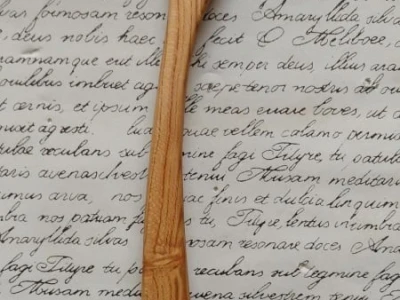 lvas formosam reson doces Amaryllida silva
e, deus nobis haec fecit O Meliboee,
ramnamque erit ille semper deus, illius aram
ovilibus imbuet ag saepe tener nostris ab ovi
t cernis, et ipsum lle meas errare boves, ut
misit agresti. lud quae vellem calamo permis
tulae recubans sub mine fagi Tityre, tu patula
taris avena silvest tenui Musam meditaris
imus arva, nos fines et dulcia linquim
mbra nos patriam fug tu, Tityre, lentus in umbra
Amaryllida silvas mosam resonare doces Ama
fagi Tityre tu pa recubans sub tegmine fag
Musam medi avena silvestrem tenui